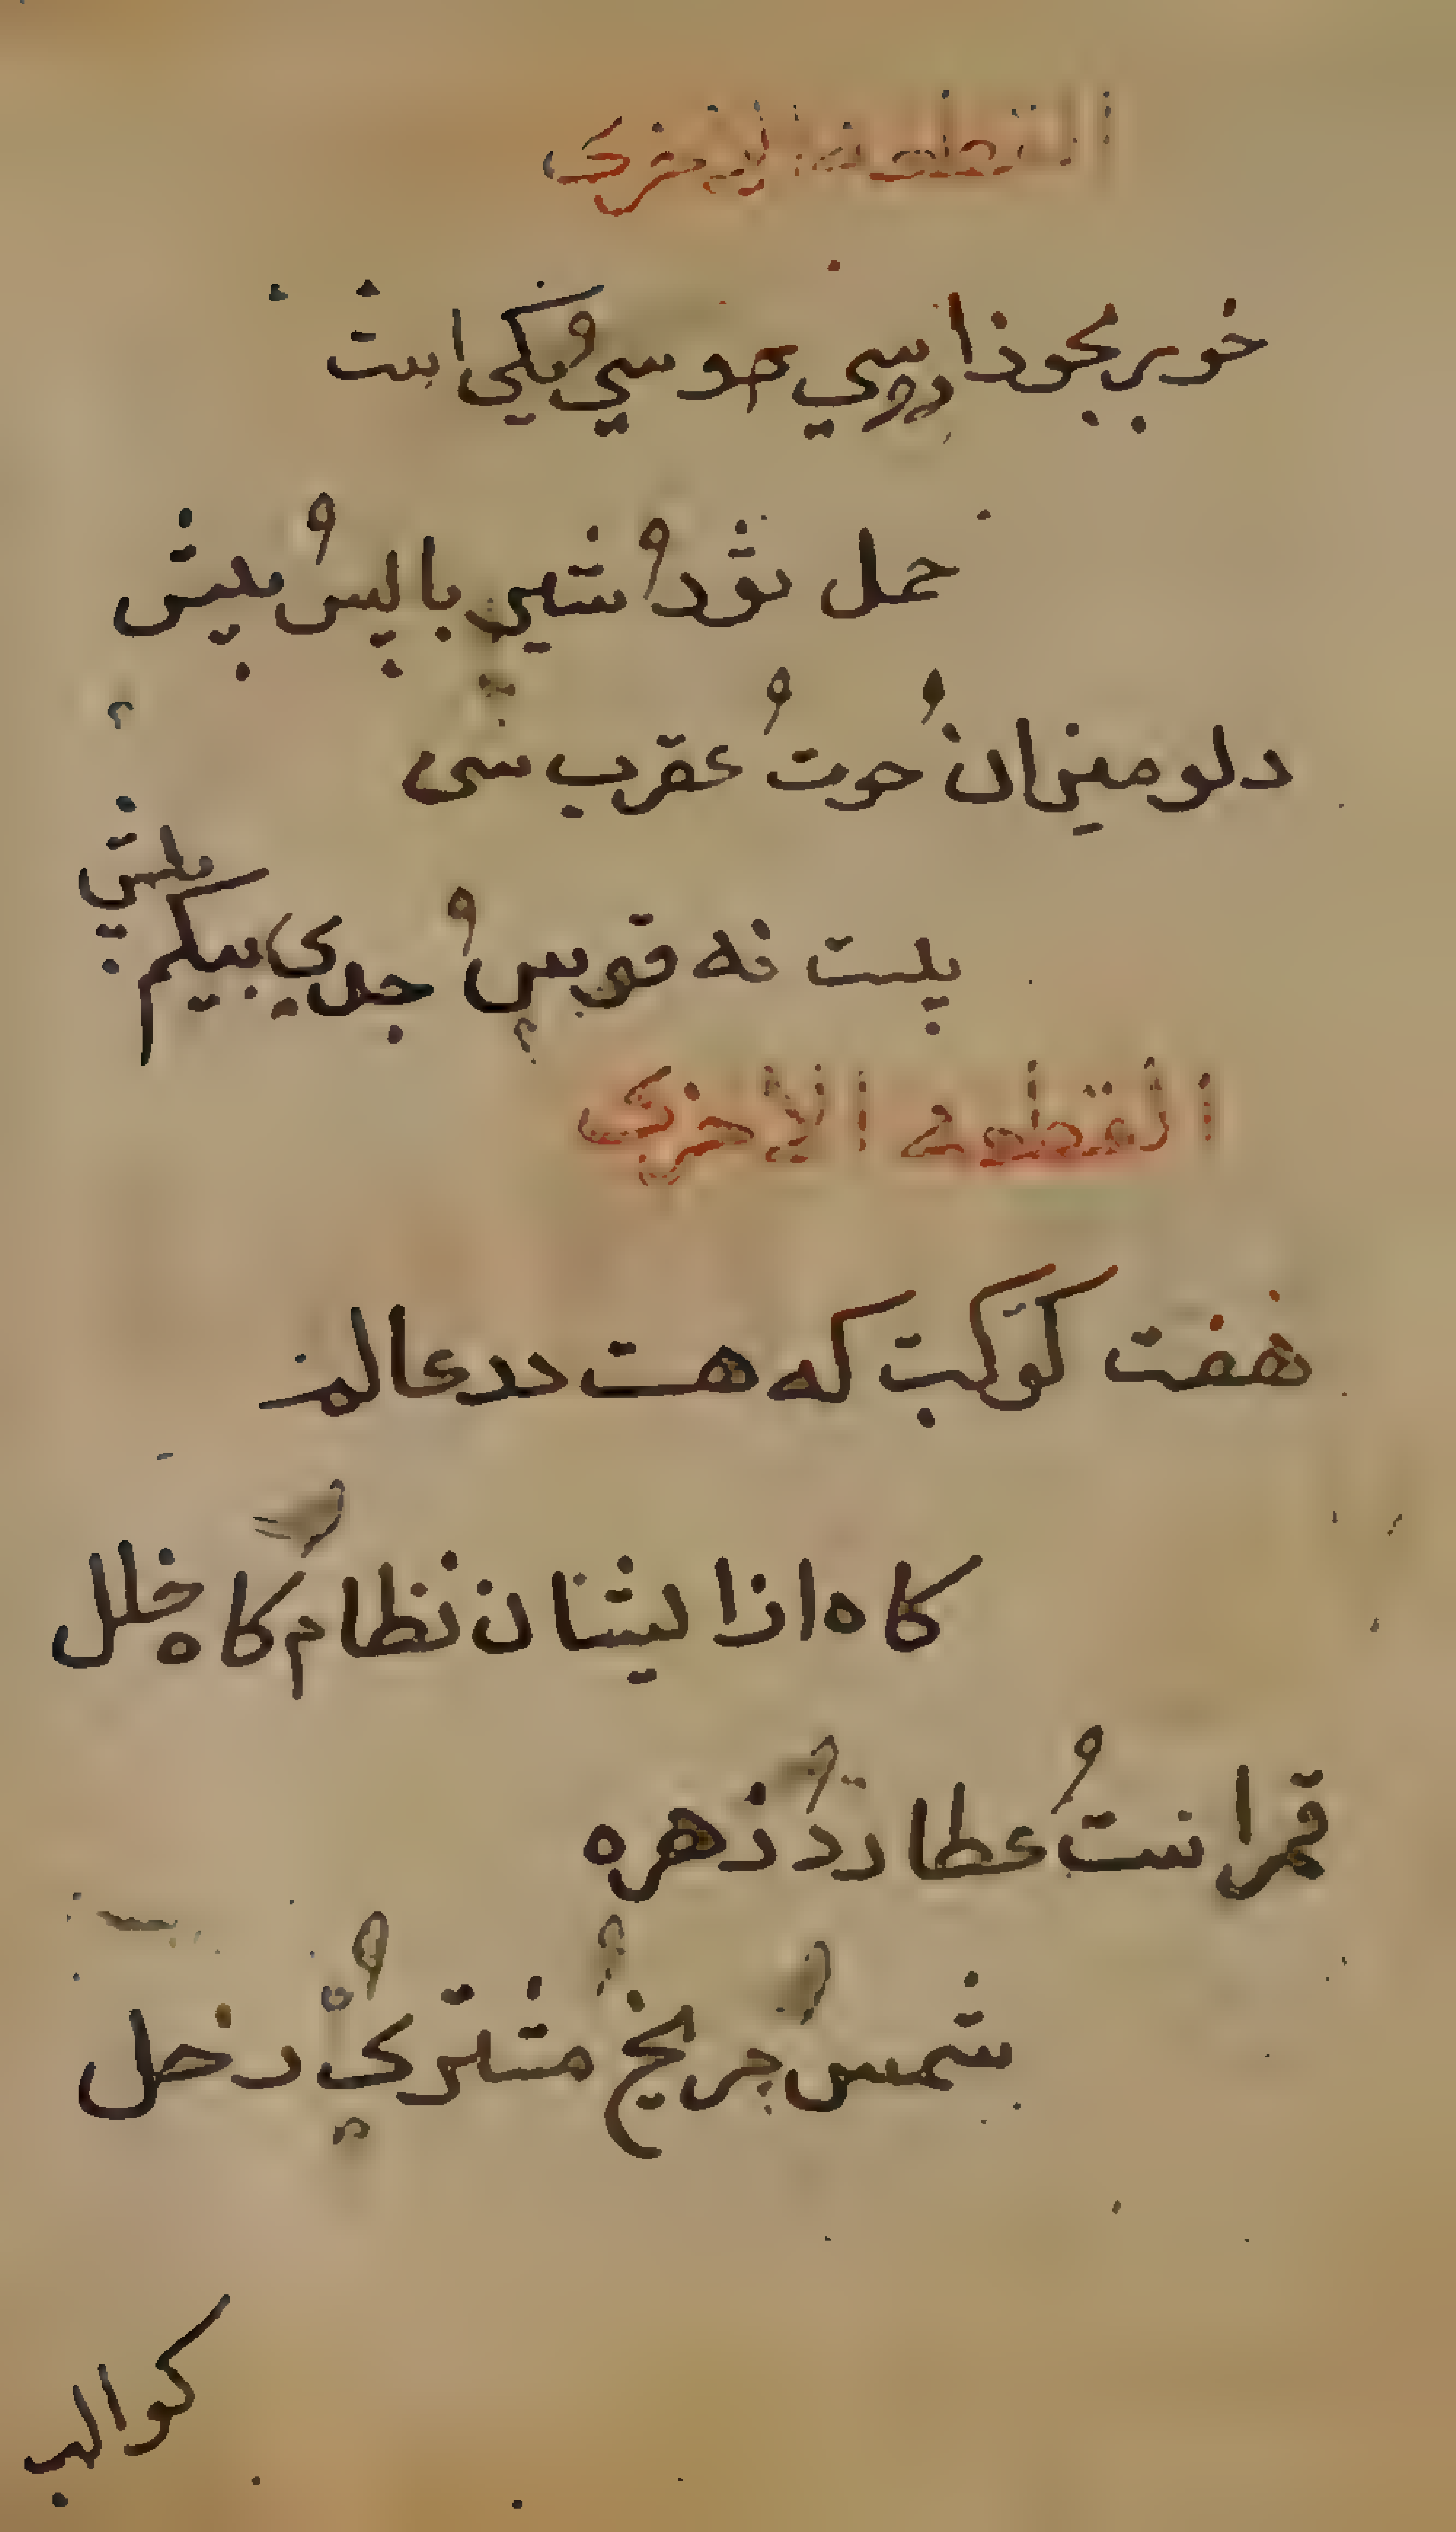 القطعة الاخرى
خور بجوذا سي دو سي و يكي است
حمل ثور و شير با پس و پيش
دلو ميزان و حوت و عقرب سى
بيست نه قوس و جدي بيكم
بيش
القطعة الاخرى
هفت كوكب كه هست در عالم
كاه از ايشان نظام كاه خلل
قمر است و عطارد و زهره
شمس و مريخ و مشترى و زحل
كواكب